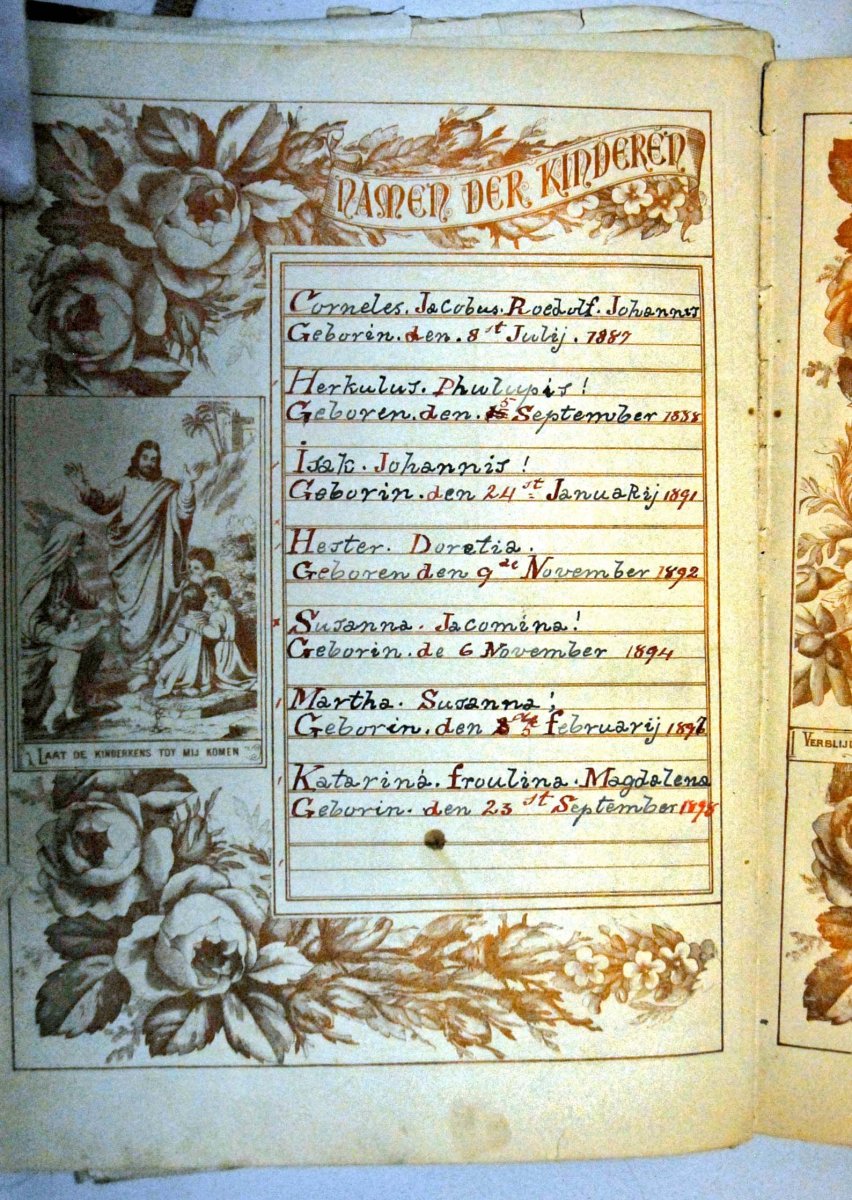 NAMEN DER KINDEREN
Corneles. Jacobus. Roedolf. Johannis
Geborin. den. 8st Julij. 1887
Herkulus. Phulupis!
Geboren. den. 5 September 1888
Isak. Johannis!
Geborin. den 24st Januarij 1891
Hester. Doretia.
Geboren den 9de November 1892
Susanna. Jacomina!
Geborin. de 6 November 1894
Martha. Susanna!
Geborin. den 5 februarij
Katarina. froulina. Magdalena
Geborin. den 23st September 1898
LAAT DE KINDERKENS TOT MIJ KOMEN
VERBLIJD